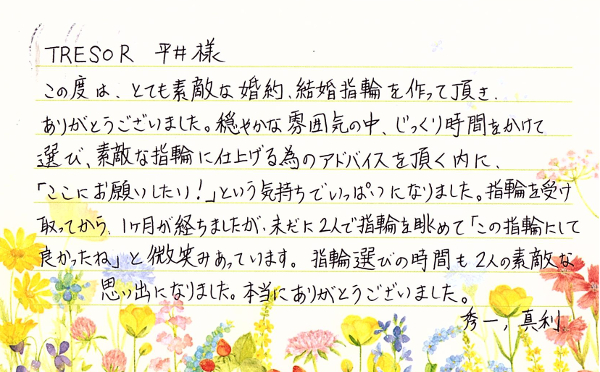 TRESOR 平井様
この度は、とても素敵な婚約、結婚指輪を作って頂き、
ありがとうございました。穏やかな雰囲気の中、じっくり時間をかけて
選び、素敵な指輪に仕上げる為のアドバイスを頂く内に、
「ここにお願いしたい!」という気持ちでいっぱいになりました。指輪を受け
取ってから、1ヶ月が経ちましたが、未だに2人で指輪を眺めて「この指輪にして
良かったね」と微笑みあっています。指輪選びの時間も2人の素敵な
思い出になりました。本当にありがとうございました。
秀一、真利